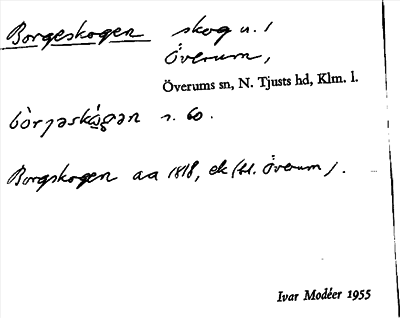 Borgeskogen skog u. /
Överum,
Överums sn, N. Tjusts hd, Klm. l.
bòrjəskọ́gən s. 60.
Borgskogen aa 1818, ek (bl. Överum).
Ivar Modéer 1955